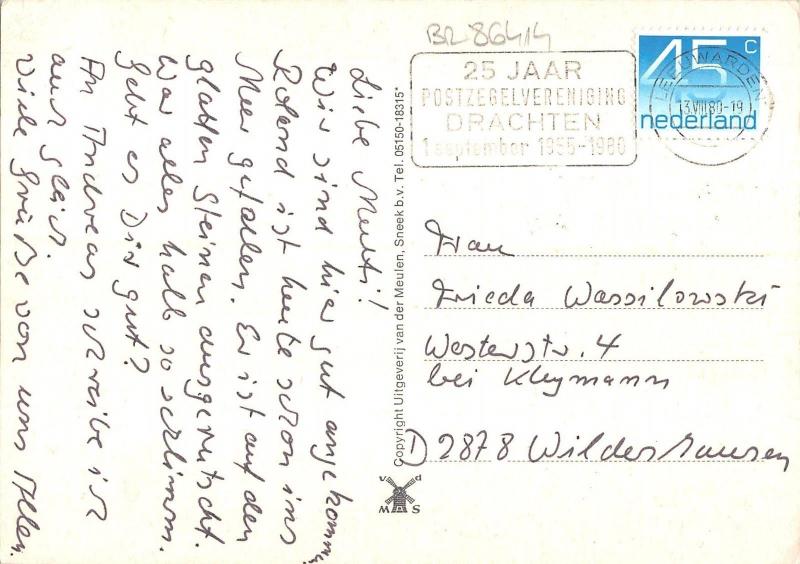 Liebe Mutti!
Wir sind hier gut angekommen.
Roland ist heute schon ins
Meer gefallen. Er ist auf den
glatten Steinen ausgerutscht.
War alles halb so schlimm.
Geht es Dir gut?
An Andreas schreibe ich
auch gleich.
Viele Grüße von uns Allen.
Copyright Uitgeverij van der Meulen, Sneek b.v. Tel. 05150-18315*
v d
M S
BR 86414
25 JAAR
POSTZEGELVERENIGING
DRACHTEN
1 september 1955-1980
45 c
nederland
LEEUWARDEN
13.VIII.80-19
Frau
Frieda Wassilowski
Westerstr. 4
bei Kleymann
D 2878 Wildeshausen